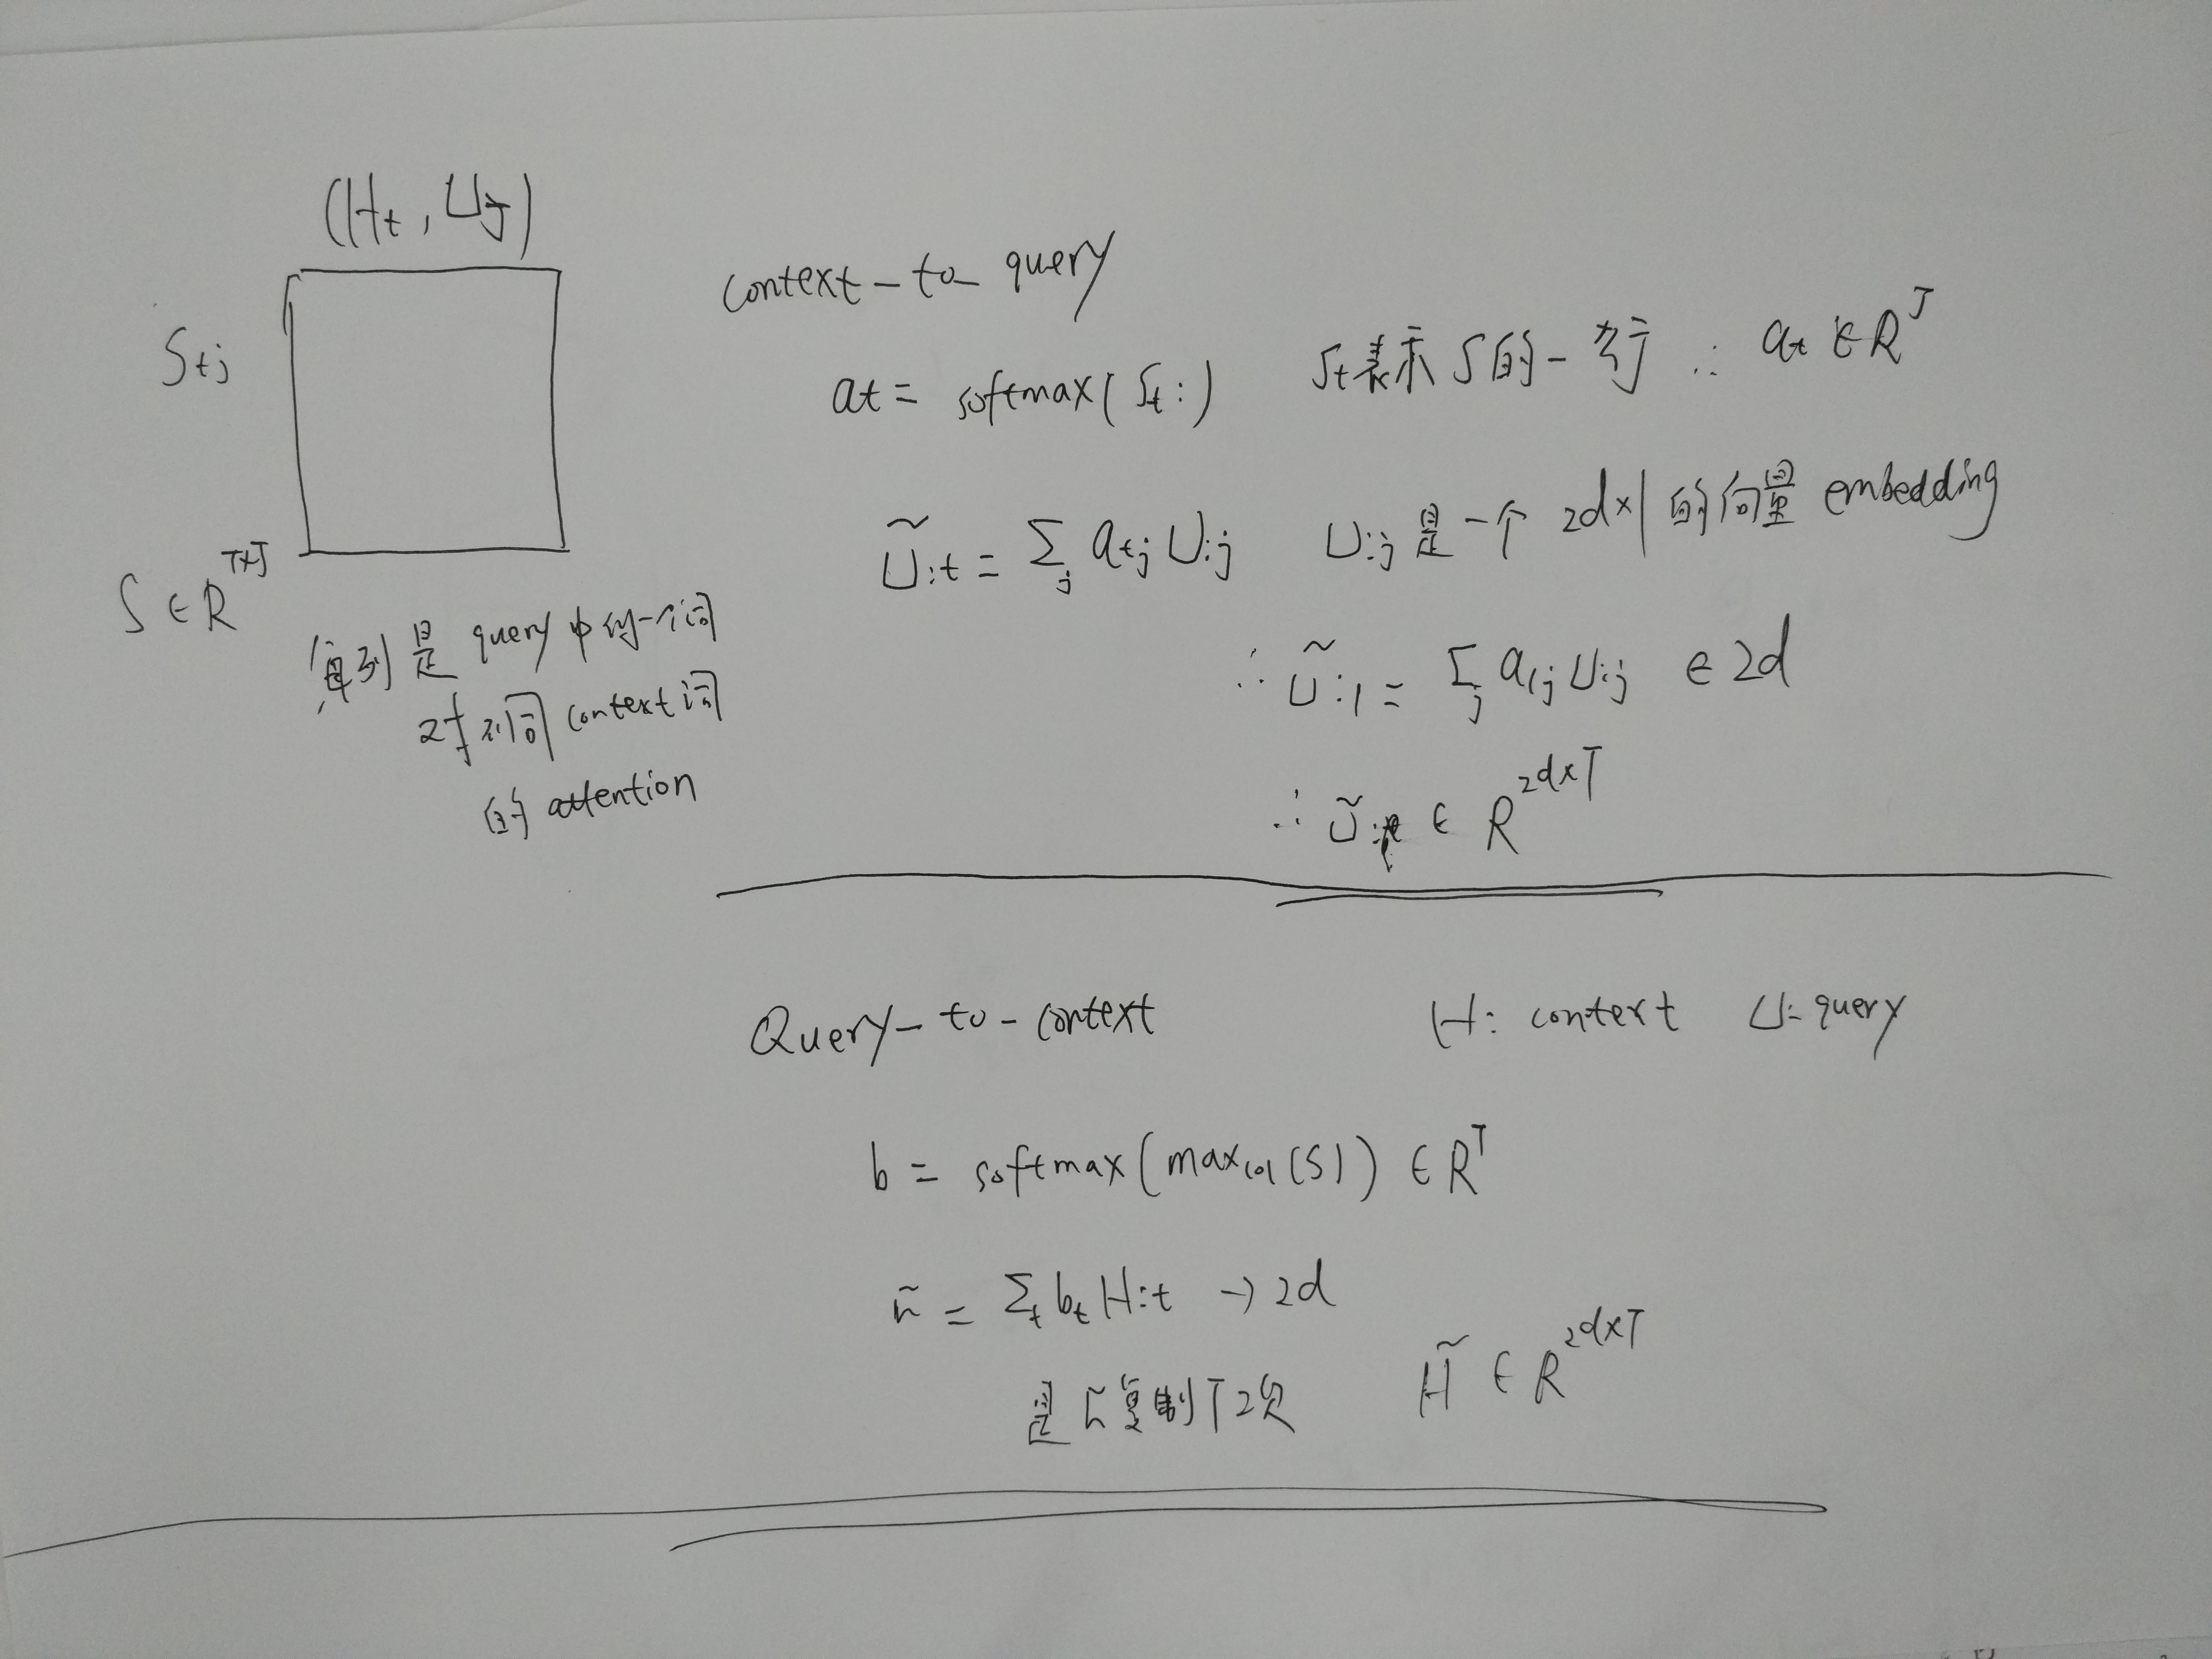 (Ht, Uj)
Stj
S ∈ R^{T×J}
每列是 query 中的一个词
对不同 context 词
的 attention
context-to-query
at = softmax(St:)
St表示S的一行 ∴ at ∈ R^J
Ũ:t = Σ_j atj U:j
U:j 是一个 2d×1 的向量 embedding
∴ Ũ:1 = Σ_j a1j U:j ∈ 2d
∴ Ũ ∈ R^{2d×T}
Query-to-context
H: context U: query
b = softmax(max_col(S)) ∈ R^T
h̃ = Σ_t bt H:t → 2d
是 h̃ 复制T次
H̃ ∈ R^{2d×T}